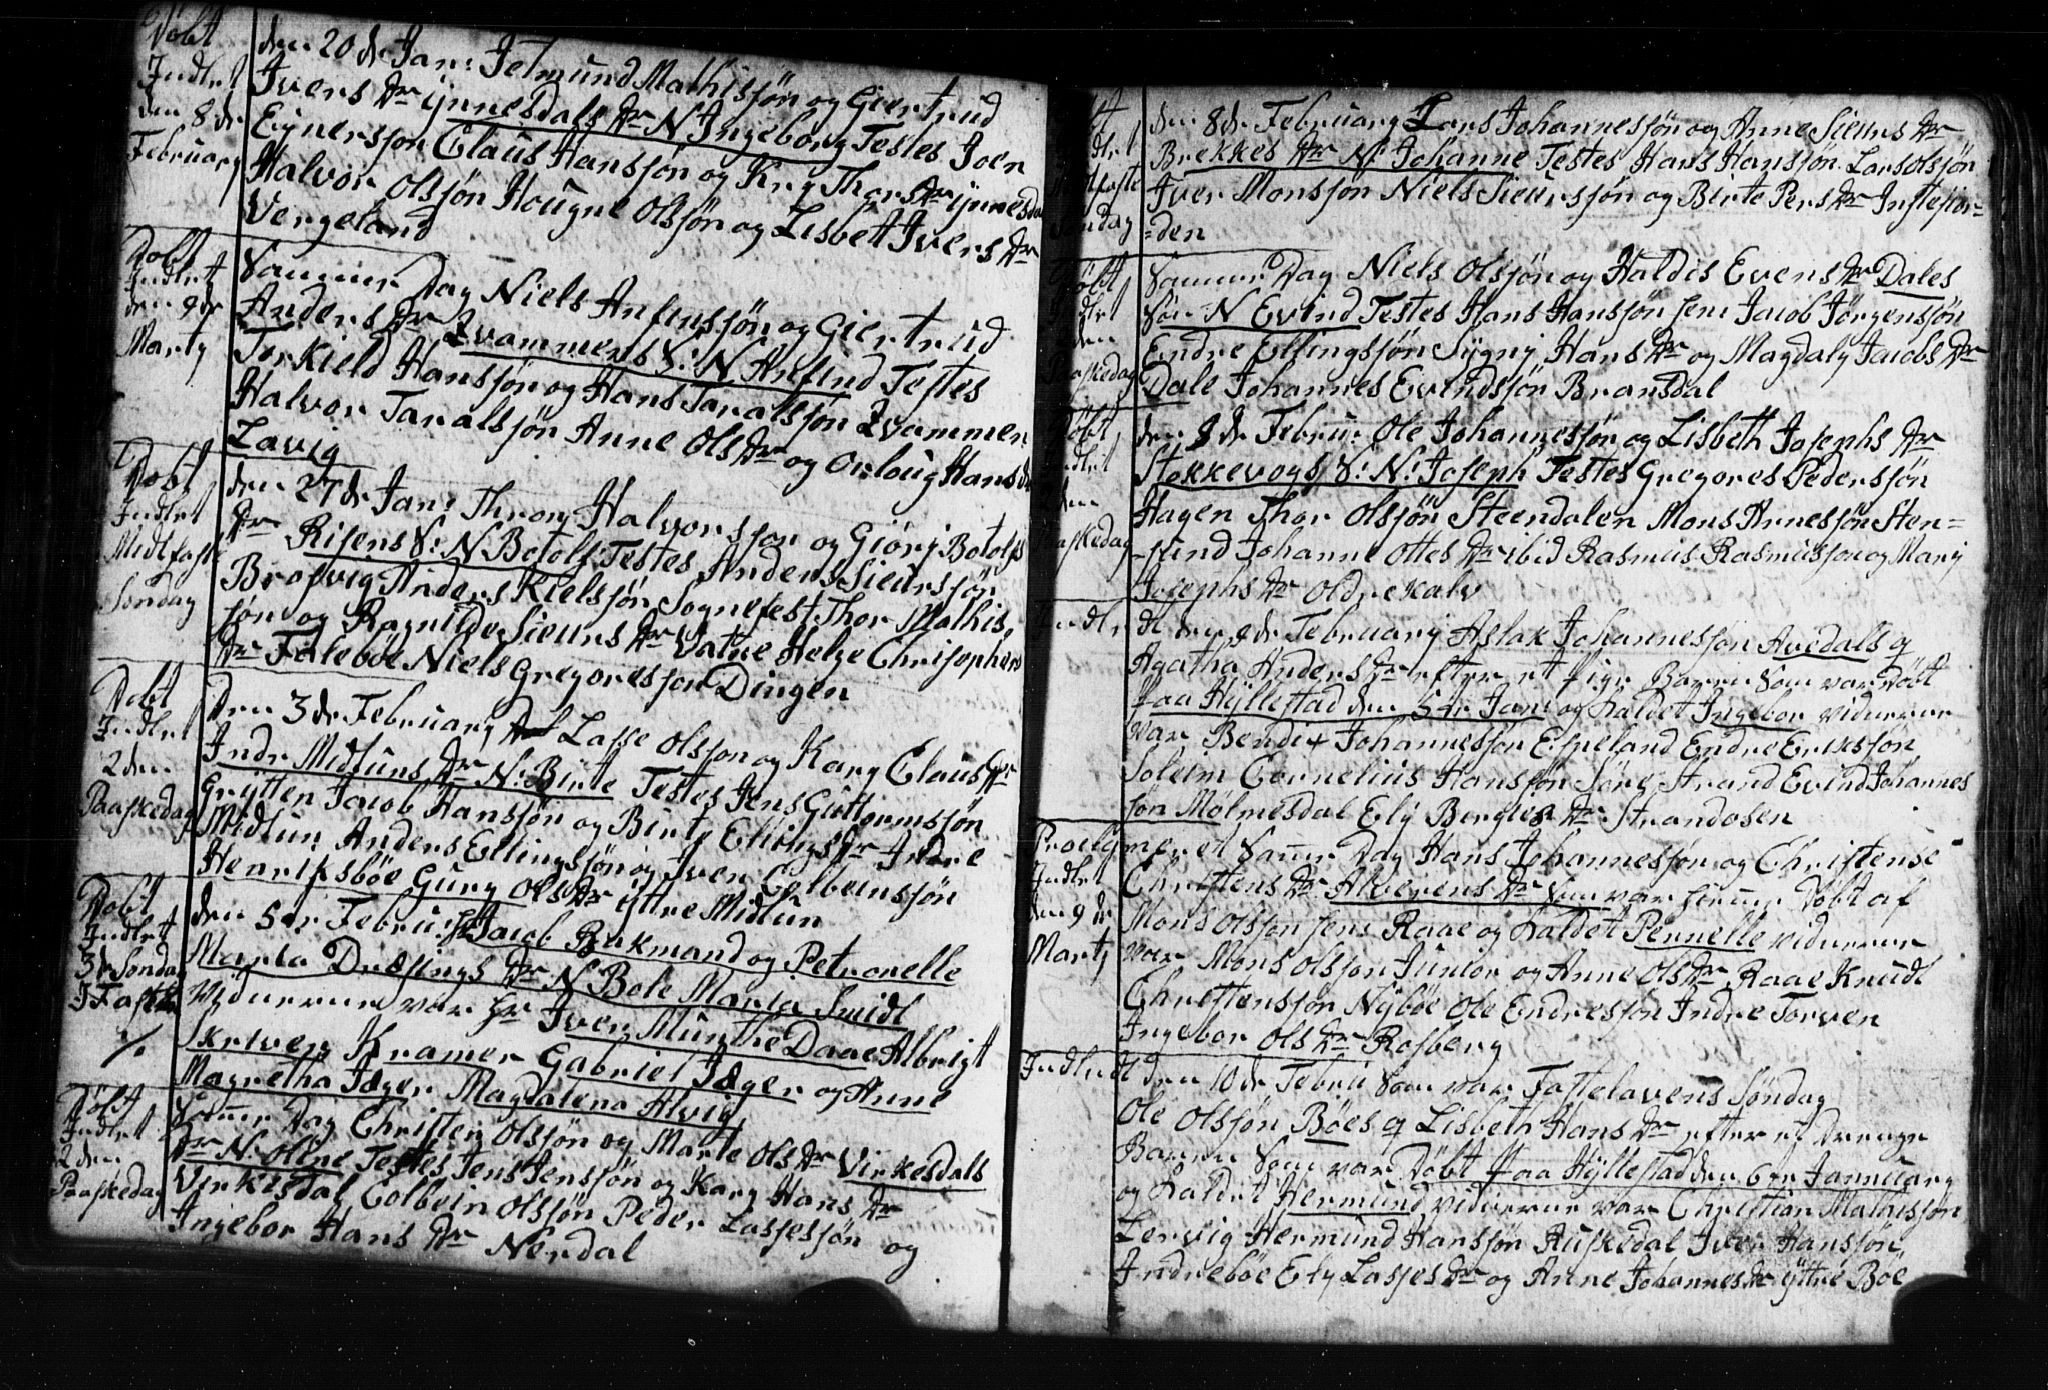 Döbt
Indlet
den 8 de
February
den 20 de Jan: Jetmund Mathisjön og Giertrud
Ivers Dr Ÿnnesdals Dr N Ingeborg Testes Joen
Eynersjon Claus Hansjön og Kry Thors Dr Ÿnnesdal
Halvor Olsjön Hougne Olsjön og Lisbet Ivers Dr
Vergeland
Döbt
Indlet
den 9 de
Marty
Samme Dag Niels Anfinsjön og Giertrud
Anders Dr Qvammens S: N Anfind Testes
Torkield Hansjön og Hans Taralsjön Qvammen
Halvor Taralsjön Anne Ols Dr og Orloug Hans dr
Lavig
Döbt
Indlet
Midtfaste
Söndag
den 27 de Jan: Throny Halvorsjon og Giörj Botolfs
Dr Risens S: N Botolf Testes Anders Sieursjön
Brosvig Anders Kielsjön Sognefest Thor Mathis
jön og Ragnilde Sieurs Dr Vatne Helge Christophers
Dr Faleböe Niels Gregoresjon Dingen
Döbt
Indlet
2 den
Paaskedag
Den 3 de February Lasse Olsjon og Kary Claus Dr
Indr Midtuns Dr N: Birte Testes Jens Guttormsjön
Grytten Jacob Hansjön og Birte Ellings Dr Indre
Midtun Anders Ellingsjön og Iver Colbeinsjön
Henriksböe Gury Ols Dr Yttre Midtun
Döbt
Indlet
3 de Söndag
I Faste
den 5 de Febru: Hr Jacob Bukmand og Petronelle
Maria Dræsings Dr N Bole Maria Smidt
Viduerne var Hr Iver Munthe Daae Albrigt
Skriver Kramer Gabriel Jæger og Anne
Magretha Jæger Magdalena Alvig
Döbt
Indlet
2 den
Paaskedag
Samme Dag Christen Olsjön og Marte Ols Dr Virkesdals
Dr N: Oline Testes Jens Jensjön og Kary Hans Dr
Virkesdal Colbein Olsjön Peder Lassesjön og
Ingebor Hans Dr Nerdal
Indlet
Midtfaste
Söndag
den 8 de February Lars Johannesjön og Anne Sieurs Dr
Brekkes Dr N: Johanne Testes Hans Hansjön Lars Olsjön
Iver Monsjön Niels Sieursjön og Birte Pers Dr Instefior=
=den
Döbt
Indlet
2 den
Paaskedag
Samme Dag Niels Olsjön og Haldis Evens Dr Dales
Sön N Evind Testes Hans Hansjön sen: Jacob Jörgensjön
Endre Ellingsjön Sÿgnj Hans Dr og Magdaly Jacobs Dr
Dale Johannes Evindsjön Bransdal
Döbt
Indlet
2 den
Paaskedag
den 9 de Febru: Ole Johannesjön og Lisbeth Josephs Dr
Stokkevogs S: N: Joseph Testes Gregores Pedersjön
Hagen Thor Olsjön Steendalen Mons Arnesjön Sten=
sund Johanne Ottes Dr ibid Rasmus Rasmusjon og Marj
Josephs Dr Oldrekalv
Indledt den 9 de February Aslak Johannesjön Avedals q
Agatha Anders Dr efter et Pige Barn Som var Döbt
paa Hÿllestad den 5 de Jan: og kaldet Ingebor viduerne
var Bendix Johannesjon Espeland Endre Eriksjön
Soleim Cornelius Hansjön Sörestrand Evind Johannes
jön Mölmesdal Elÿ Bergles Dr Strandosen
Proclameret
Indlet
den 9 de
Marty
Samme Dag Hans Johannesjön og Christense
Christens Dr Akerens Dr Som var hiemme Döbt af
Mons Olsjon sen: Raae og kaldet Pernelle viduerne
var Mons Olsjon Junior og Anne Ols Dr Raae Knudt
Christensjön Nÿböe Ole Endresjon Indre Torven
Ingebor Ols Dr Rosberg
Indledt den 10 de Febru Som var Fastelavens Söndag
Ole Olsjön Böes q Lisbeth Hans Dr efter et Drenge
Barn Som var Döbt paa Hÿllestad den 6 de January
og kaldet Hermund viduerne var Christian Mathisjön
Lervig Hermund Hansjön Ruskedal Iver Hansjön
Indreböe Elÿ Lasses Dr og Anne Johannes Dr Ÿttre Böe